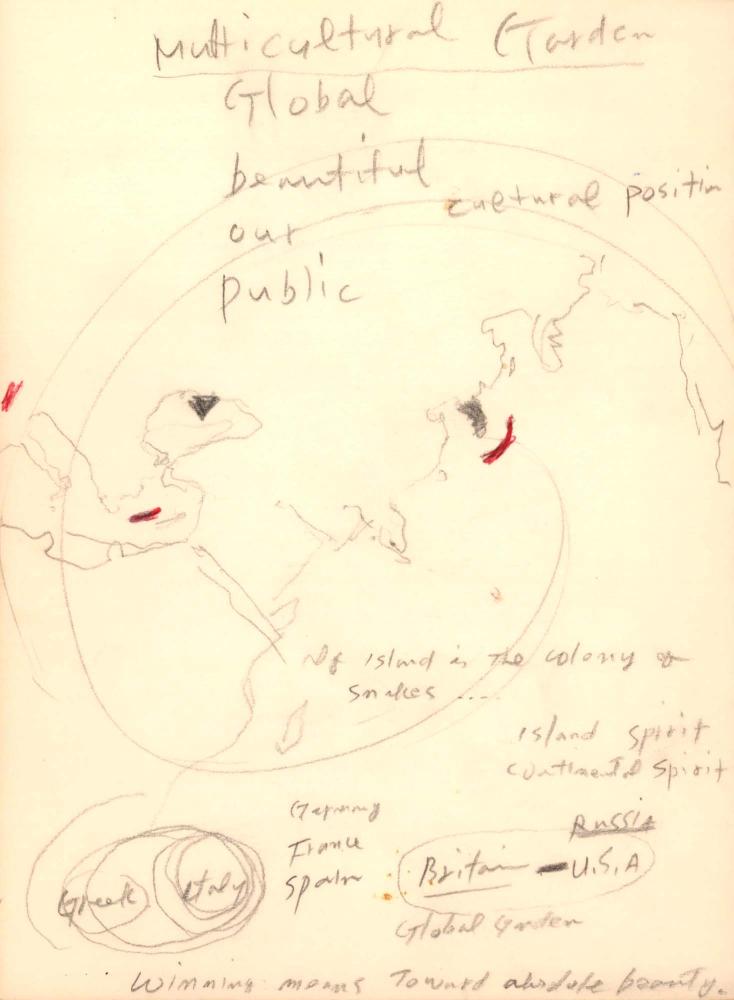 Multicultural Garden
Global
beautiful
cultural positin
our
public
Island is the colony of
snakes ....
Island spirit
continental spirit
Germany
France
Spain
Russia
Britain - U.S.A
Greek Italy
Global Garden
Winning means Toward absolute beauty.